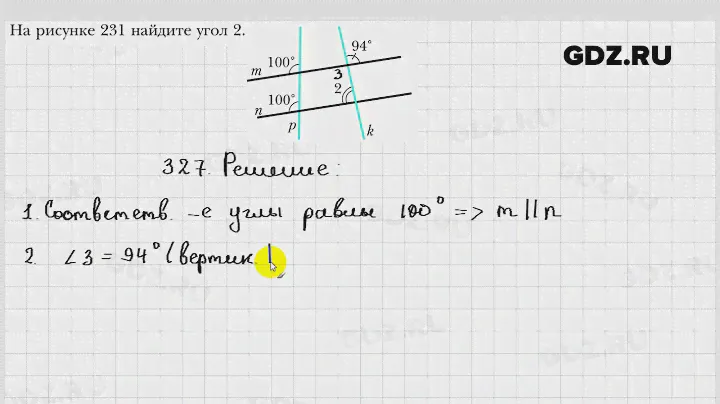 На рисунке 231 найдите угол 2.
GDZ.RU
94°
m 100° 3
2
n 100°
p k
327. Решение:
1. Соответств. -е углы равны 100° => m || n
2. ∠3 = 94° (вертик.